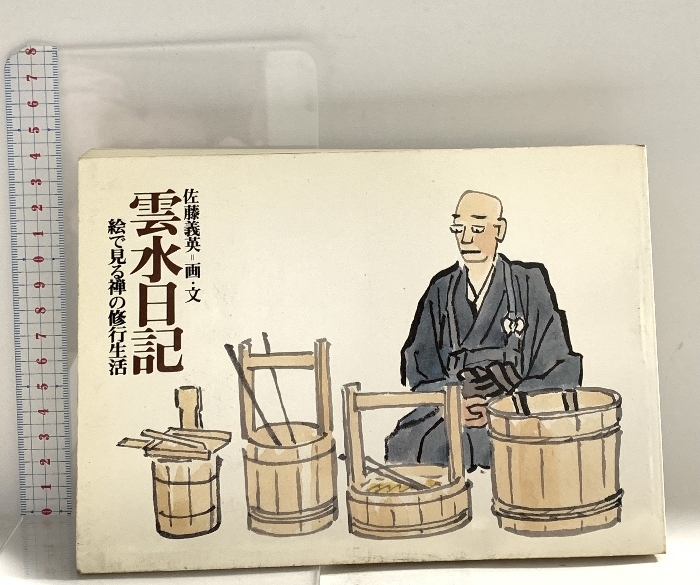 佐藤義英=画・文
雲水日記
絵で見る禅の修行生活
8
7
6
5
4
3
2
1
0
9
8
7
6
5
4
3
2
1
0